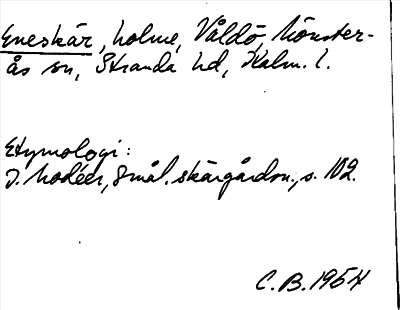 Eneskär, holme, Våldö, Mönster-
ås sn, Stranda hd, Kalm. l.
Etymologi:
J. Modéer, Smål. skärgårdsn., s. 102.
C. B. 1954